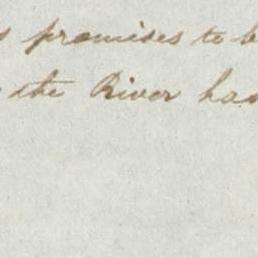 s promises to b
the River has